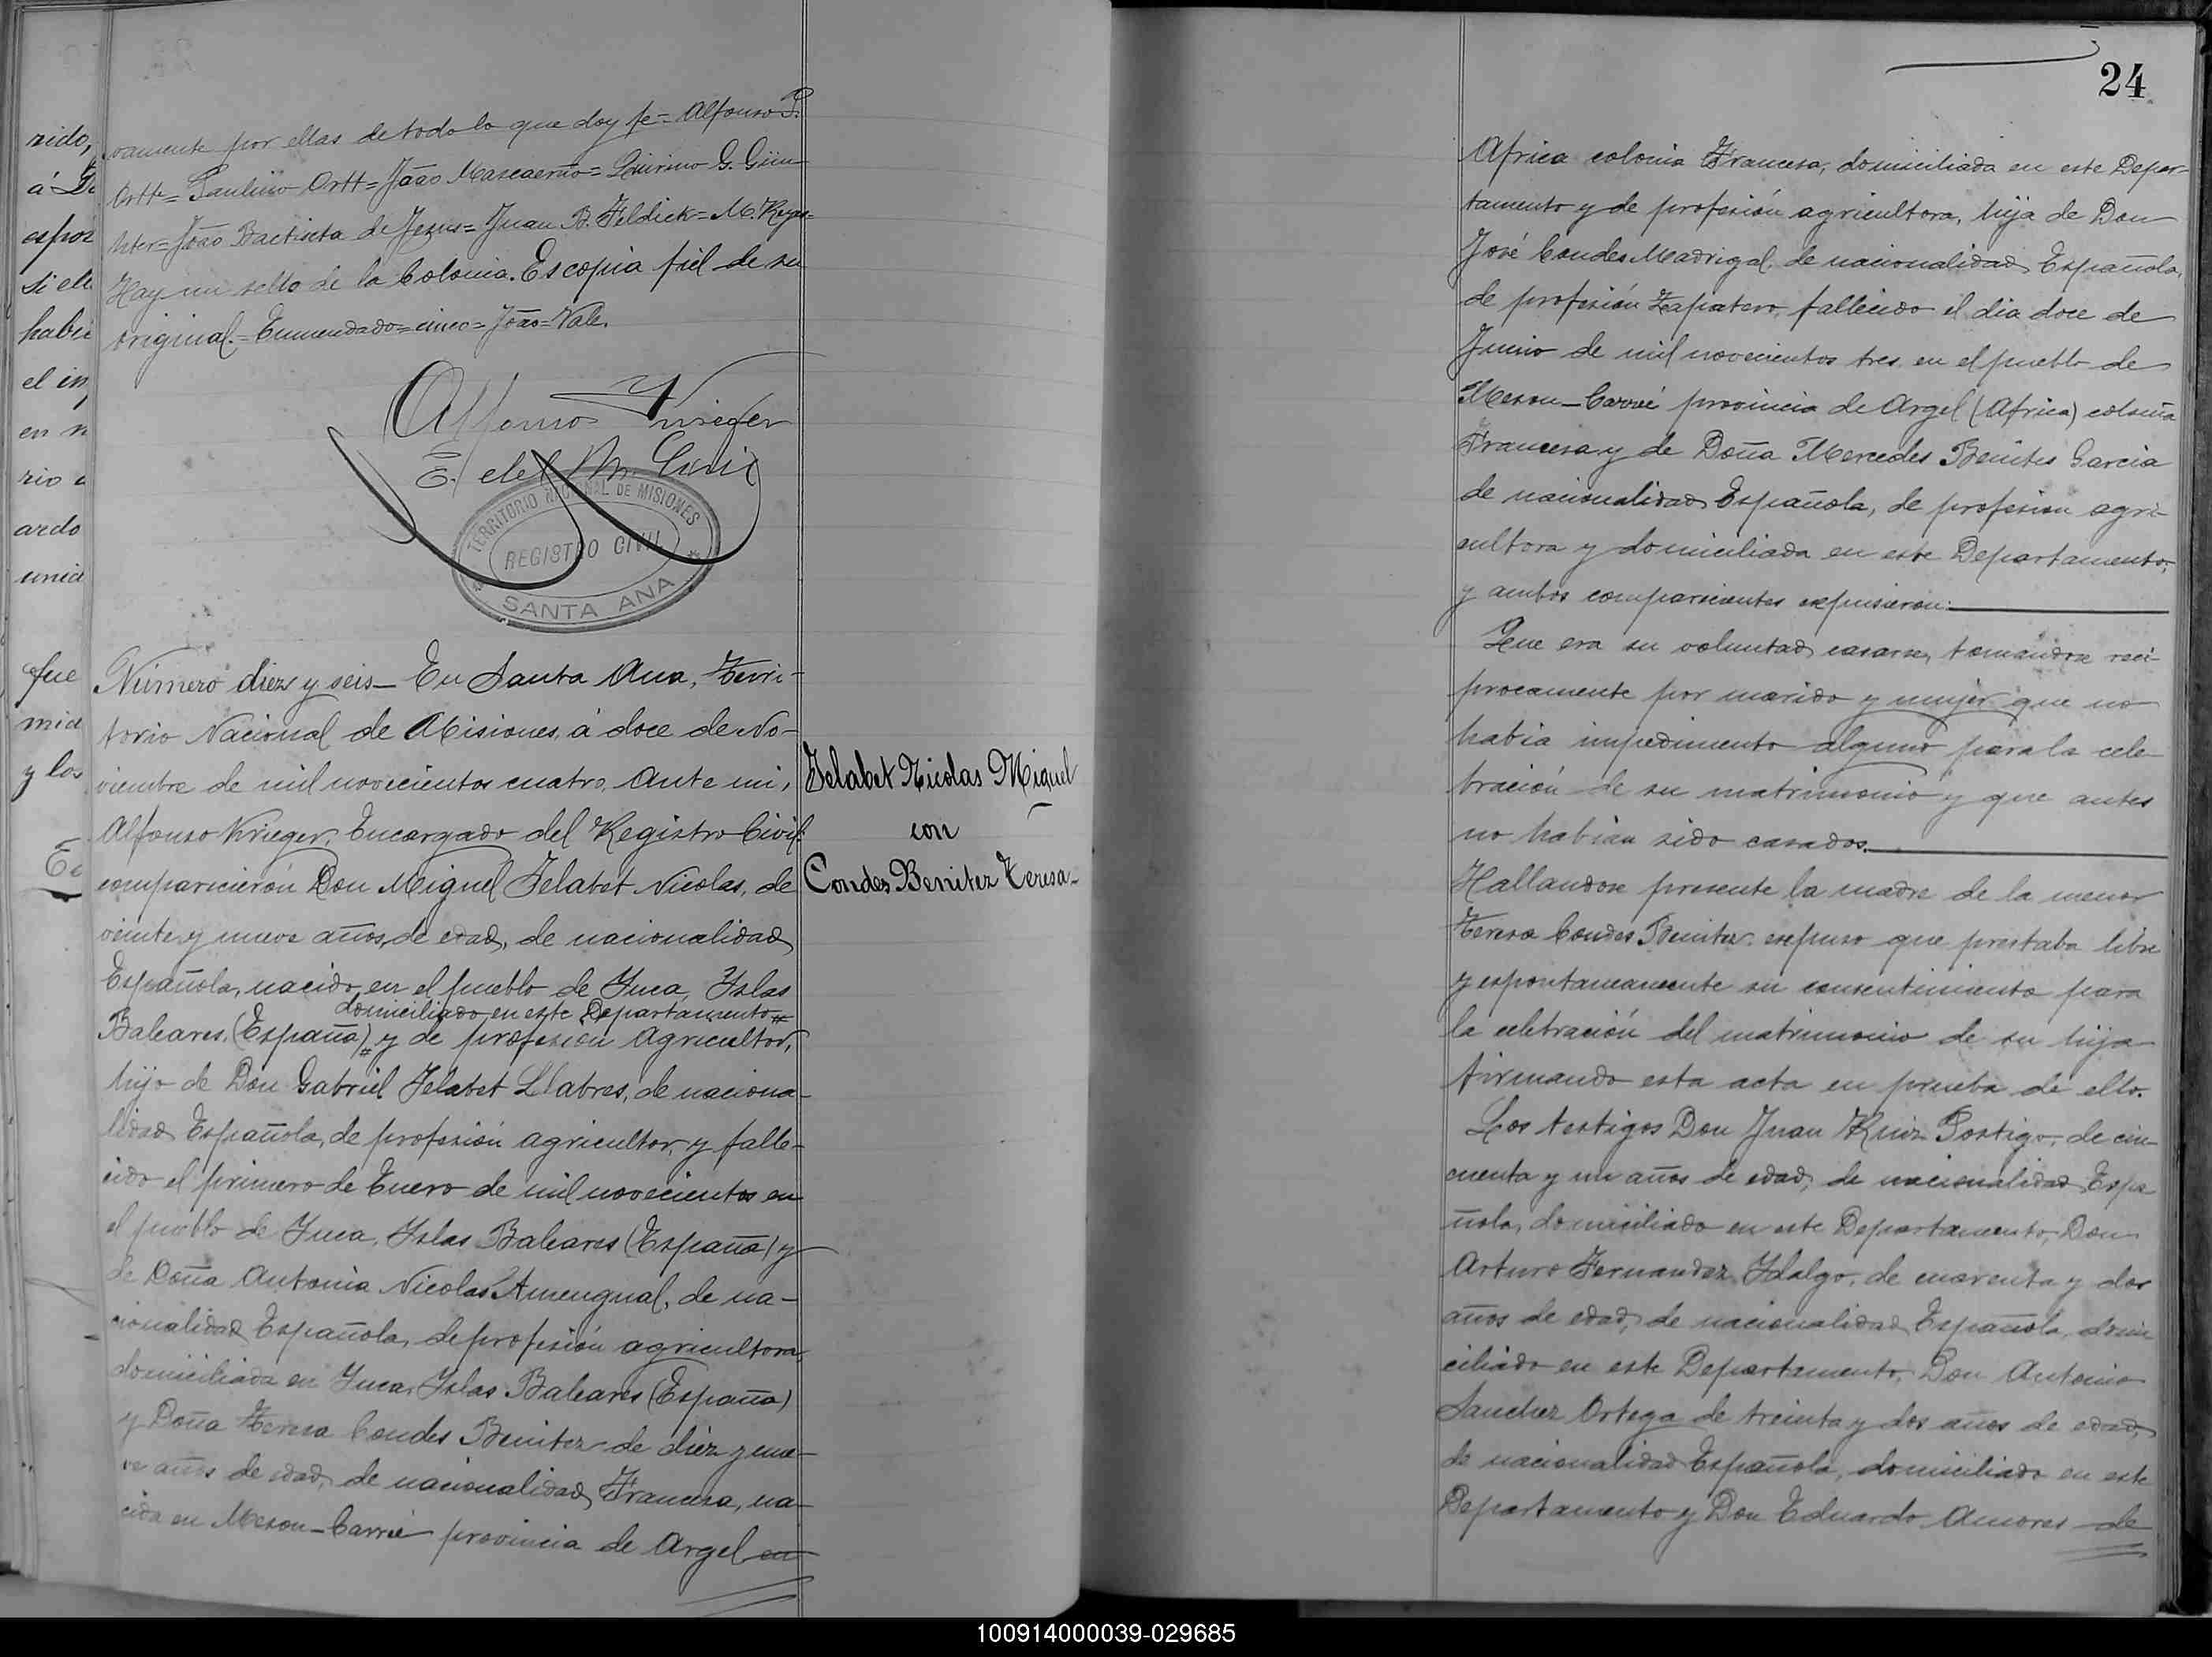 rido,
á D
espoz
si ell
habie
el im
en n
rio
ardo
unid
que
mid
y los
E
vamente por ellas de todo lo que doy fe = Alfonso P.
Ortt = Paulino Ortt = João = G. Gün
hter = João Bactista de Jesus = Juan B. Feldick = M. Reyes =
Hay un sello de la Colonia. Es copia fiel de su
original. = Enmendado = cinco = João = Vale.
Alfonso Krieger
E. del R. Civil
TERRITORIO NACIONAL DE MISIONES
REGISTRO CIVIL
SANTA ANA
Número diez y seis - En Santa Ana, Terri-
torio Nacional de Misiones, á doce de No-
viembre de mil novecientos cuatro, Ante mi,
Alfonso Krieger, Encargado del Registro Civil
comparicieron Don Miguel Jelabet Nicolas, de
veinte y nueve años de edad, de nacionalidad
Española, nacido en el pueblo de Ynca, Yslas
domiciliado en este Departamento #
Baleares, (España) # y de profesión Agricultor,
hijo de Don Gabriel Jelabet Llabres, de naciona-
lidad Española, de profesión agricultor, y falle-
cido el primero de Enero de mil novecientos en
el pueblo de Ynca, Yslas Baleares (España) y
de Doña Antonia Nicolas Amengual, de na-
cionalidad Española, de profesión agricultora,
domiciliada en Ynca, Yslas Baleares (España)
y Doña Teresa Condes Benitez de diez y nue-
ve años de edad, de nacionalidad Francesa, na-
cida en Meson-Carrié provincia de Argel en
Jelabet Nicolas Miguel
con
Condes Benitez Teresa-
24
Africa colonia Francesa, domiciliada en este Depar-
tamento y de profesión agricultora, hija de Don
José Condes Madrigal, de nacionalidad Española,
de profesión Zapatero, fallecido el dia doce de
Junio de mil novecientos tres en el pueblo de
Meson-Carrié provincia de Argel (Africa) colonia
Francesa y de Doña Mercedes Benites Garcia
de nacionalidad Española, de profesion agri-
cultora y domiciliada en este Departamento,
y ambos comparecientes expusieron:
Que era su voluntad casarse, tomandose reci-
procamente por marido y mujer que no
habia impedimento alguno para la cele-
bración de su matrimonio y que antes
no habian sido casados.
Hallandose presente la madre de la menor
Teresa Condes Benitez expuso que prestaba libre
y espontaneamente su consentimiento para
la celebración del matrimonio de su hija
firmando esta acta en prueba de ello.
Los testigos Don Juan Ruiz Postigo, de cin-
cuenta y un años de edad, de nacionalidad Espa-
ñola, domiciliado en este Departamento, Don
Arturo Fernandez Ydalgo, de cuarenta y dos
años de edad, de nacionalidad Española, domi
ciliado en este Departamento, Don Antonio
Sanchez Ortega de treinta y dos años de edad,
de nacionalidad Española, domiciliado en este
Departamento y Don Eduardo Amores de
100914000039-029685